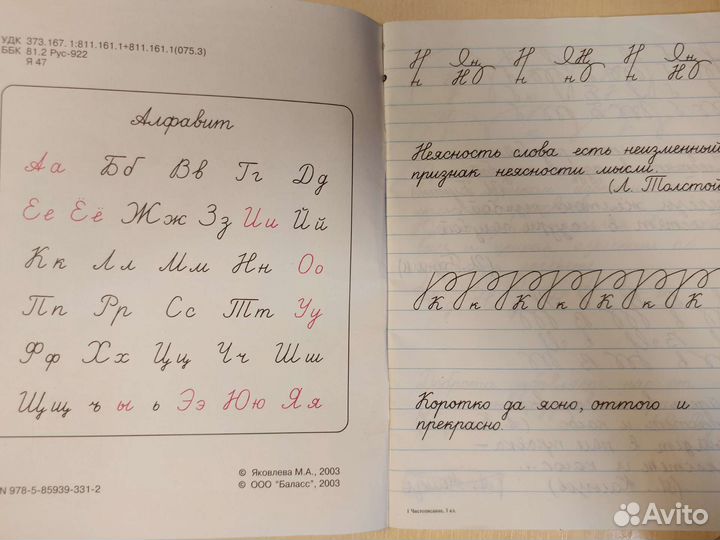 УДК 373.167. 1:811.161.1+811.161.1(075.3)
ББК 81.2 Рус-922
Я 47
Алфавит
Аа Бб Вв Гг Дд
Ее Ёё Жж Зз Ии Йй
Кк Лл Мм Нн Оо
Пп Рр Сс Тт Уу
Фф Хх Цц Чч Шш
Щщ ъ ы ь Ээ Юю Яя
© Яковлева М.А., 2003
© ООО "Баласс", 2003
N 978-5-85939-331-2
Неясность слова есть неизменный
признак неясности мысли.
(Л. Толстой
К к К к К к К
Коротко да ясно, оттого и
прекрасно.
1 Чистописание, 1 кл.
Avito